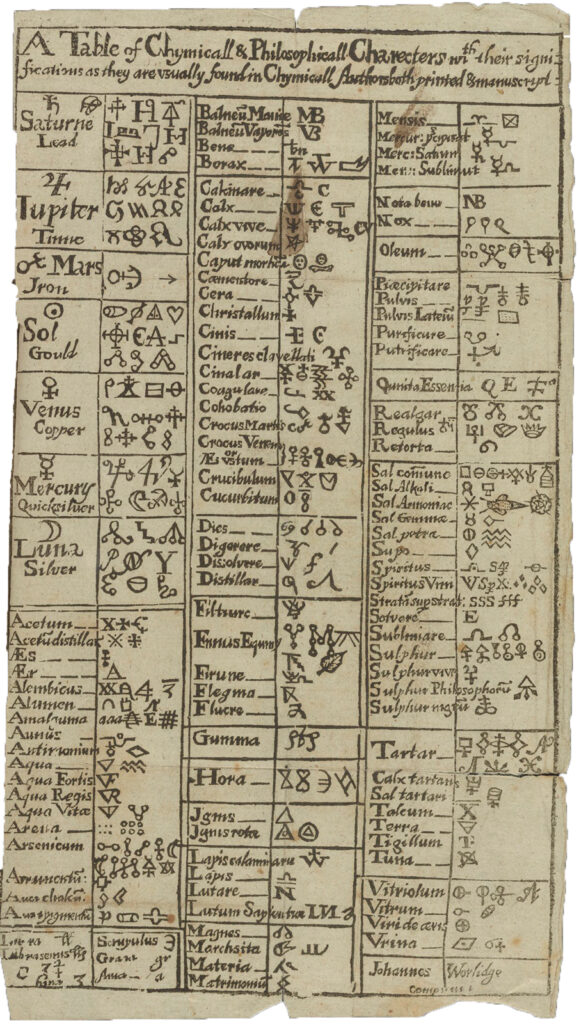 A Table of Chymicall & Philosophicall Charecters wth their signi-
fications as they are usually found in Chymicall Authors both printed & manuscript
Saturne
Lead
Iupiter
Tinne
Mars
Iron
Sol
Gould
Venus
Copper
Mercury
Quicksilver
Luna
Silver
Acetum
Acetū distillat
Æs
Aer
Alembicus
Alumen
Amalgama aaa
Antimonium
Aqua
Aqua Fortis
Aqua Regis
Aqua Vitæ
Arena
Arsenicum
Scrupulus
Grana gr
Balneū Mariæ MB
Balneū Vaporis VB
Bene bn
Borax
Calcinare C
Calx
Calx vive
Calx ovorum
Caput mortuū
Cæmentare
Cera
Christallum
Cinis
Cineres clavellati
Cinabar
Coagulare
Cohobatio
Crocus Martis
Crocus Veneris
or
Æs ustum
Crucibulum
Cucurbitum
Dies
Digerere
Disolvere
Distillar
Filture
Fimus Equiny
Flegma
Fluere
Gumma
Hora
Ignis
Ignis rotæ
Lapis calaminaris
Lapis
Lutare
Lutum Sapientiæ
Magnes
Marchsita
Materia
Matrimoniū
Mensis
Merc: Saturni
Mer: Sublimat
Nota bene NB
Nox
Oleum
Præcipitare
Pulvis
Pulvis Laterū
Purificare
Putrificare
Quinta Essentia Q E
Realgar
Regulus
Retorta
Sal comune
Sal Alkali
Sal Armoniac
Sal Gemmæ
Sal petræ
Sapo
Spiritus
Spiritus Vini
Stratū sup strat: SSS
Solvere E
Sublimare
Sulphur
Sulphur vive
Sulphur Philosophorū
Sulphur nigrū
Tartar
Calx tartari
Sal tartari
Talcum
Terra
Tigillum
Tutia
Vitriolum
Vitrum
Viride æris
Vrina
Johannes Worlidge